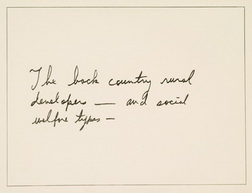 The back country rural
developers — and social
welfare types —